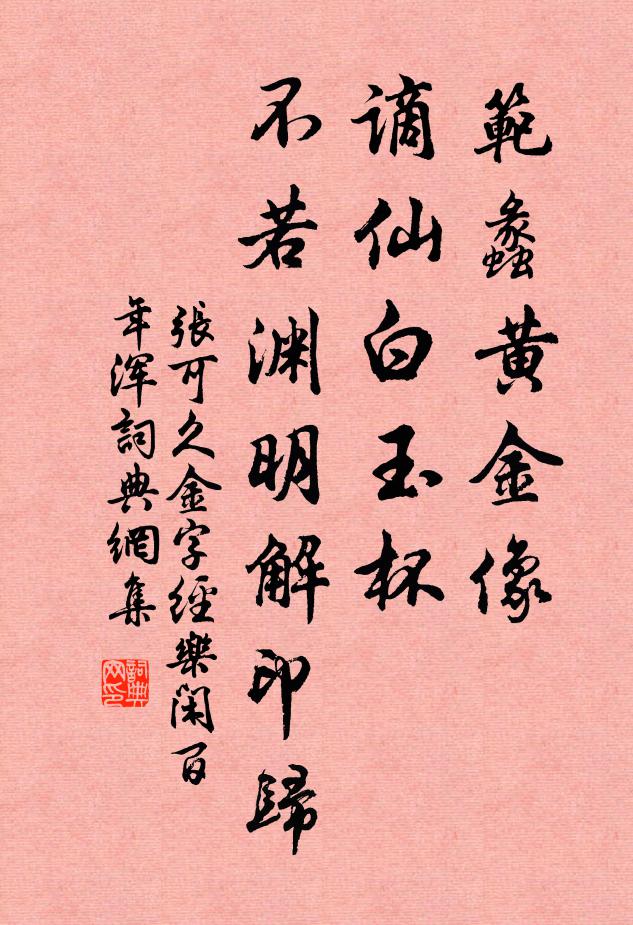 範蠡黄金像
謫仙白玉杯
不若渊明解印歸
張可久金字經樂闲百
年浑詞典網集
詞典
网印